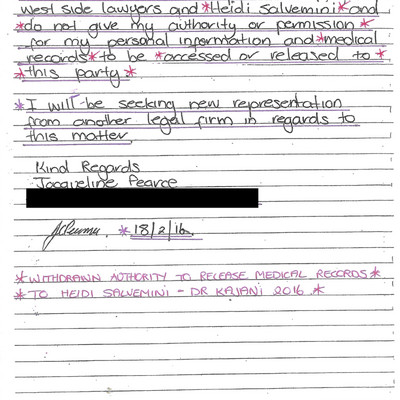 west side lawyers and *Heidi salvemini* and
*do not give my authority or permission*
for my personal information and *medical
records* to be *accessed or released to*
*this party.*
*I will be seeking new representation
from another legal firm in regards to
this matter.
Kind Regards
Jacqueline Pearce
*18/2/16.
*WITHDRAWN AUTHORITY TO RELEASE MEDICAL RECORDS*
*TO HEIDI SALVEMINI - DR KAJANI 2016.*